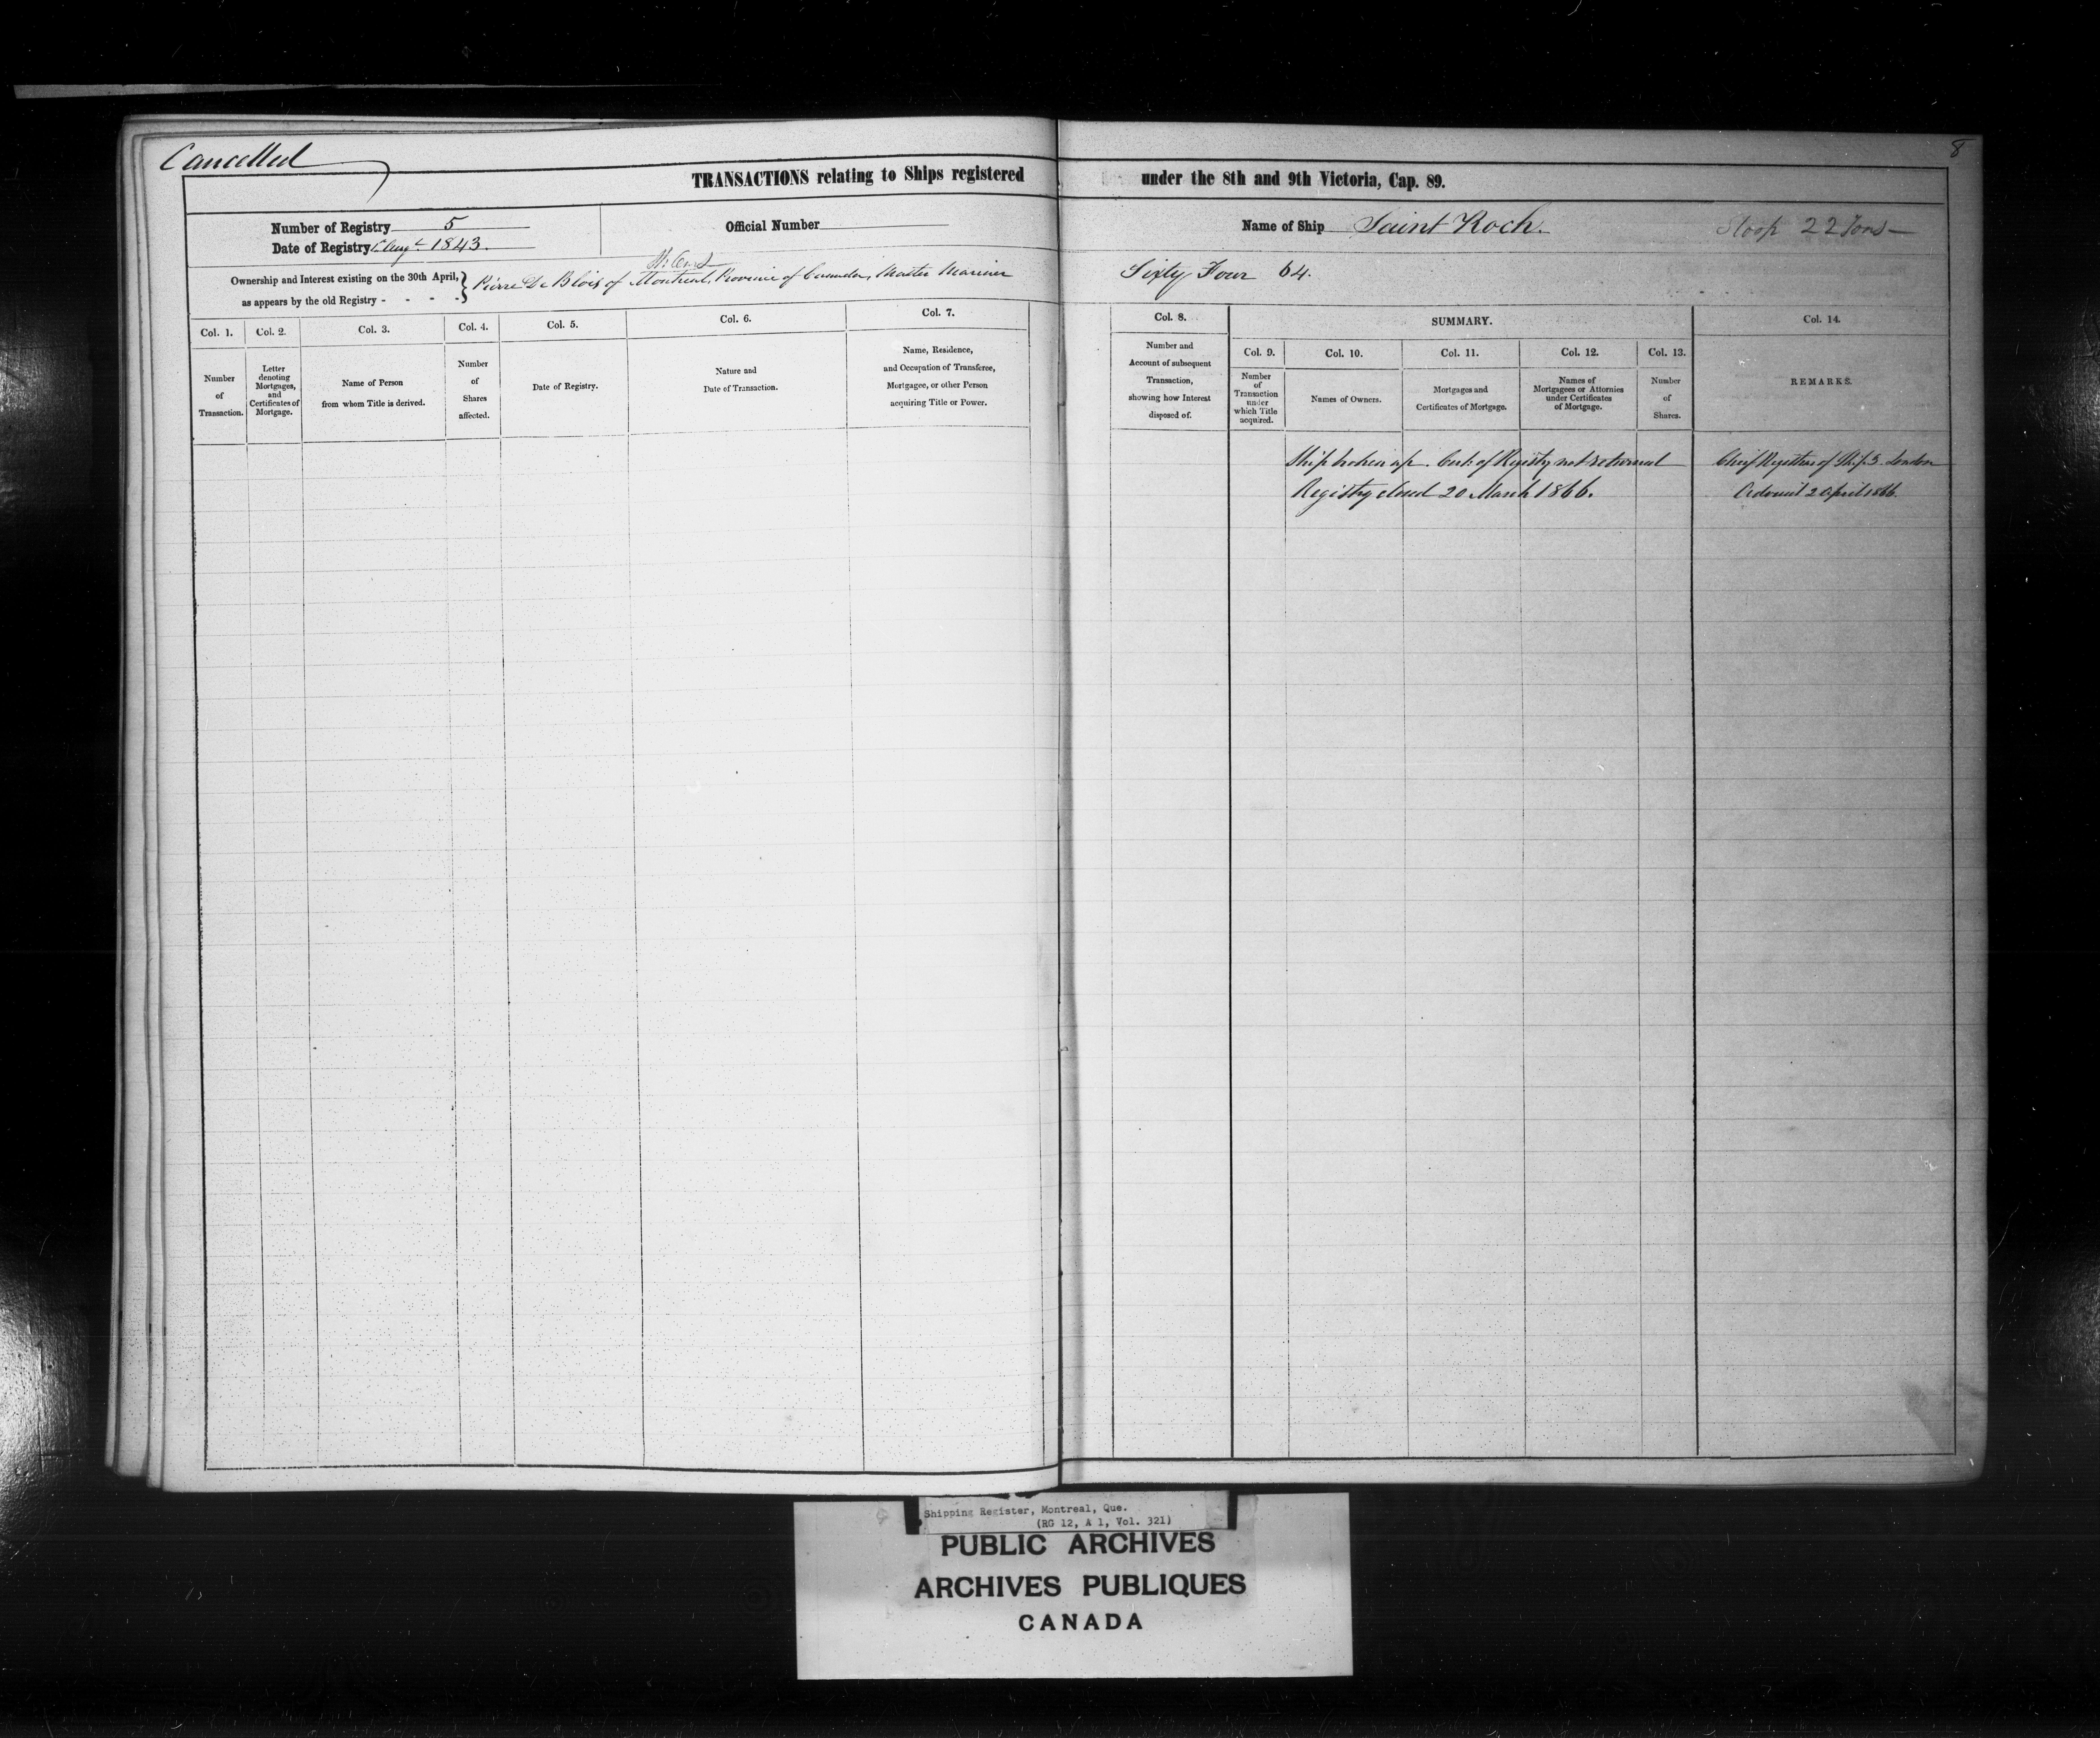 Cancelled
8
TRANSACTIONS relating to Ships registered under the 8th and 9th Victoria, Cap. 89.
Number of Registry 5
Date of Registry 1843.
Official Number
Name of Ship Saint Roch.
Sloop 22 Tons
Ownership and Interest existing on the 30th April,
as appears by the old Registry - - - -
Pierre De Blois of Montreal, Province of Canada, Master Mariner
Sixty Four 64.
Col. 1.
Number
of
Transaction.
Col. 2.
Letter
denoting
Mortgages,
and
Certificates of
Mortgage.
Col. 3.
Name of Person
from whom Title is derived.
Col. 4.
Number
of
Shares
affected.
Col. 5.
Date of Registry.
Col. 6.
Nature and
Date of Transaction.
Col. 7.
Name, Residence,
and Occupation of Transferee,
Mortgagee, or other Person
acquiring Title or Power.
Col. 8.
Number and
Account of subsequent
Transaction,
showing how Interest
disposed of.
SUMMARY.
Col. 9.
Number
of
Transaction
under
which Title
acquired.
Col. 10.
Names of Owners.
Col. 11.
Mortgages and
Certificates of Mortgage.
Col. 12.
Names of
Mortgagees or Attornies
under Certificates
of Mortgage.
Col. 13.
Number
of
Shares.
Col. 14.
REMARKS.
Ship broken up. Cert. of Registry not returned
Registry closed 20 March 1866.
Chief Registrar of Ships London
Advised 2 April 1866.
Shipping Register, Montreal, Que.
(RG 12, A 1, Vol. 321)
PUBLIC ARCHIVES
ARCHIVES PUBLIQUES
CANADA